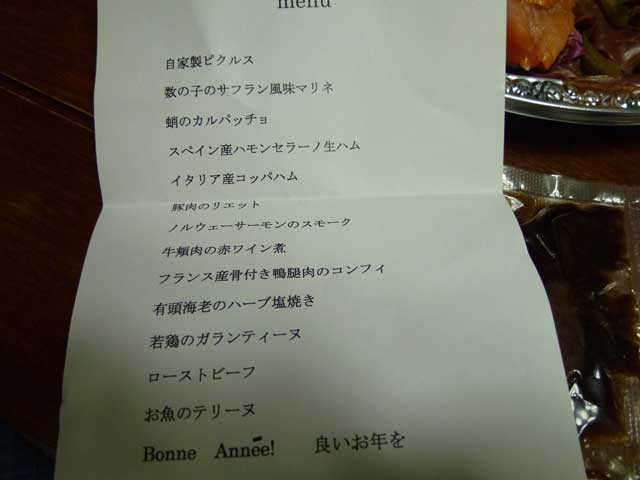 menu
自家製ピクルス
数の子のサフラン風味マリネ
蛸のカルパッチョ
スペイン産ハモンセラーノ生ハム
イタリア産コッパハム
豚肉のリエット
ノルウェーサーモンのスモーク
牛頬肉の赤ワイン煮
フランス産骨付き鴨腿肉のコンフィ
有頭海老のハーブ塩焼き
若鶏のガランティーヌ
ローストビーフ
お魚のテリーヌ
Bonne Année! 良いお年を